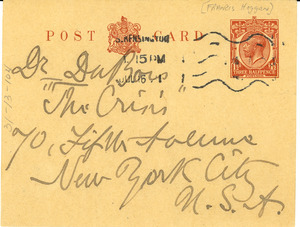 [FRANCIS Hoggan]
POST CARD
S. KENSINGTON
15 PM
THREE HALFPENCE
Dr. Du Bois
"The Crisis"
70, Fifth Avenue
New York City
U.S.A.